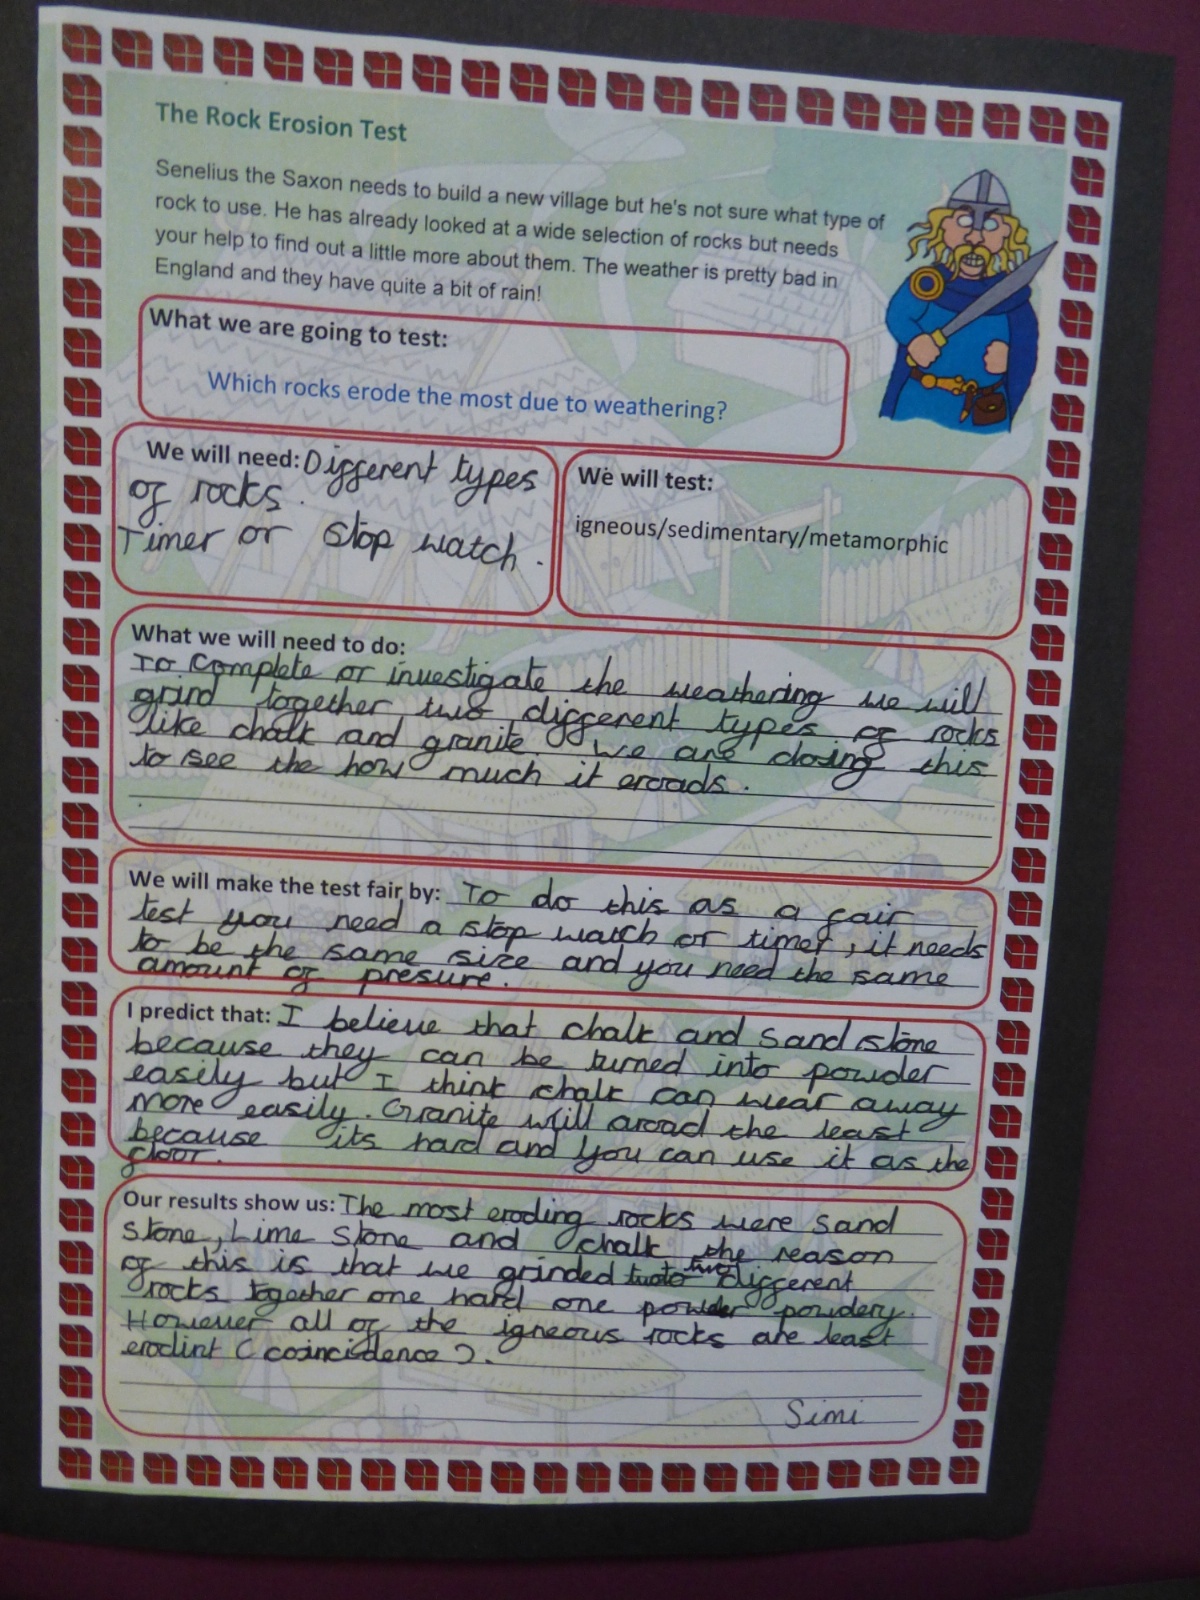 The Rock Erosion Test
Senelius the Saxon needs to build a new village but he's not sure what type of
rock to use. He has already looked at a wide selection of rocks but needs
your help to find out a little more about them. The weather is pretty bad in
England and they have quite a bit of rain!
What we are going to test:
Which rocks erode the most due to weathering?
We will need: Different types
of rocks.
Timer or stop watch.
We will test:
igneous/sedimentary/metamorphic
What we will need to do:
To complete or investigate the weathering we will
grind together two different types of rocks
like chalk and granite. We are doing this
to see the how much it eroads.
We will make the test fair by: To do this as a fair
test you need a stop watch or timer, it needs
to be the same size and you need the same
amount of presure.
I predict that: I believe that chalk and sand stone
because they can be turned into powder
easily but I think chalk can wear away
more easily. Granite will aroad the least
because its hard and you can use it as the
floor.
Our results show us: The most eroding rocks were sand
stone, Lime stone and chalk the reason
of this is that we grinded two different
rocks together one hard one powdery.
However all of the igneous rocks are least
erodint (coincidence).
Simi